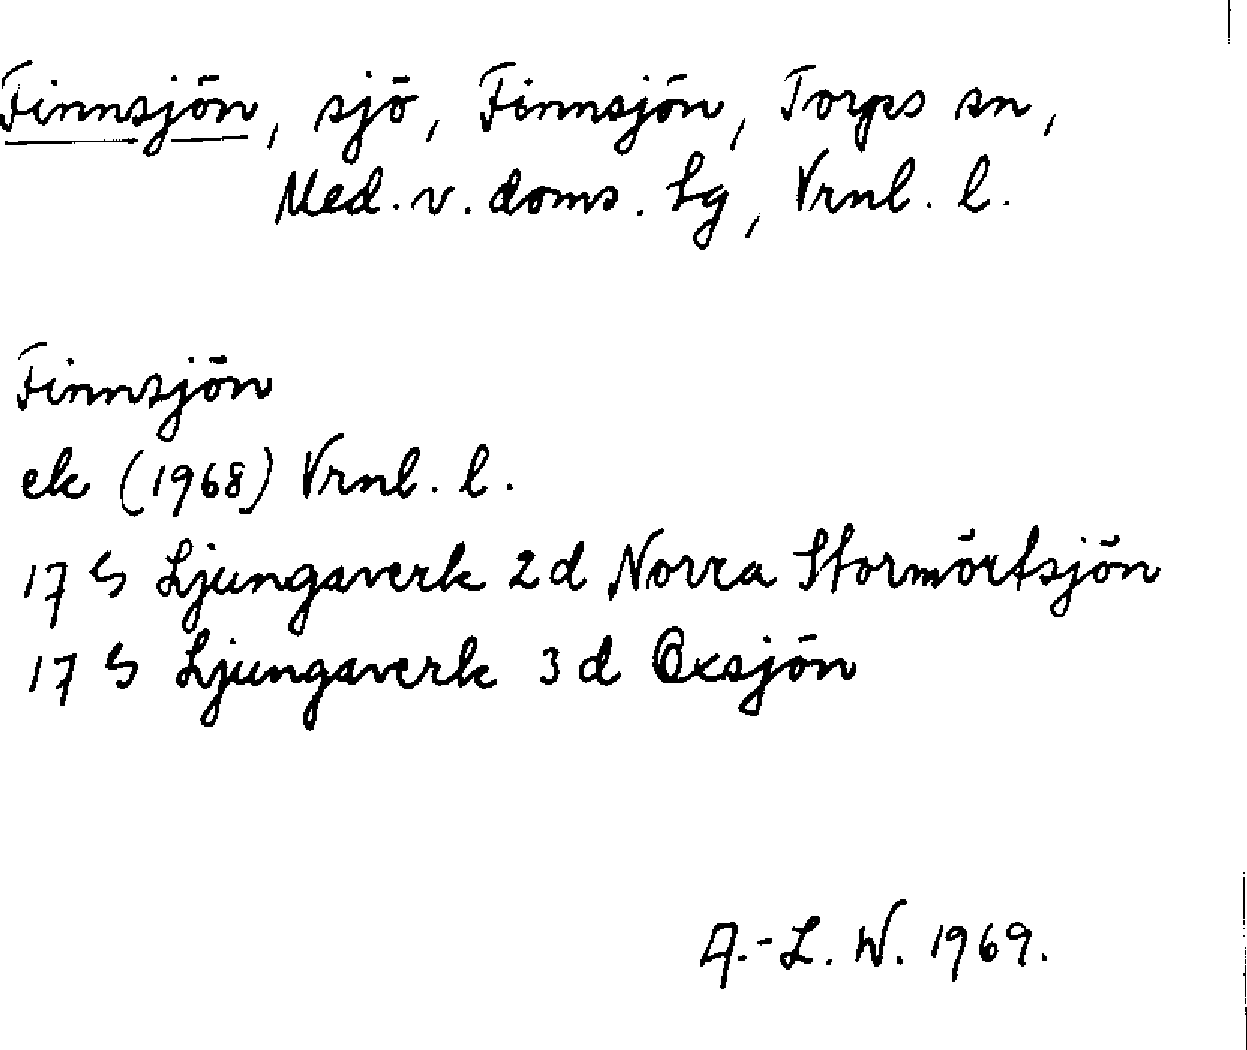 Finnsjön, sjö, Finnsjön, Torps sn,
Med. v. doms. tg, Vrnl. l.
Finnsjön
ek (1968) Vrnl. l.
17 G Ljungaverk 2d Norra Stormörtsjön
17 G Ljungaverk 3d Oxsjön
A.-L. W. 1969.